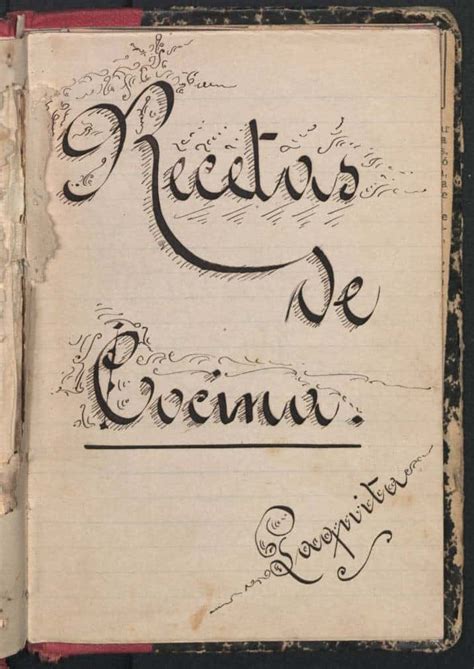 Recetas
de
Cocina.
Paquita